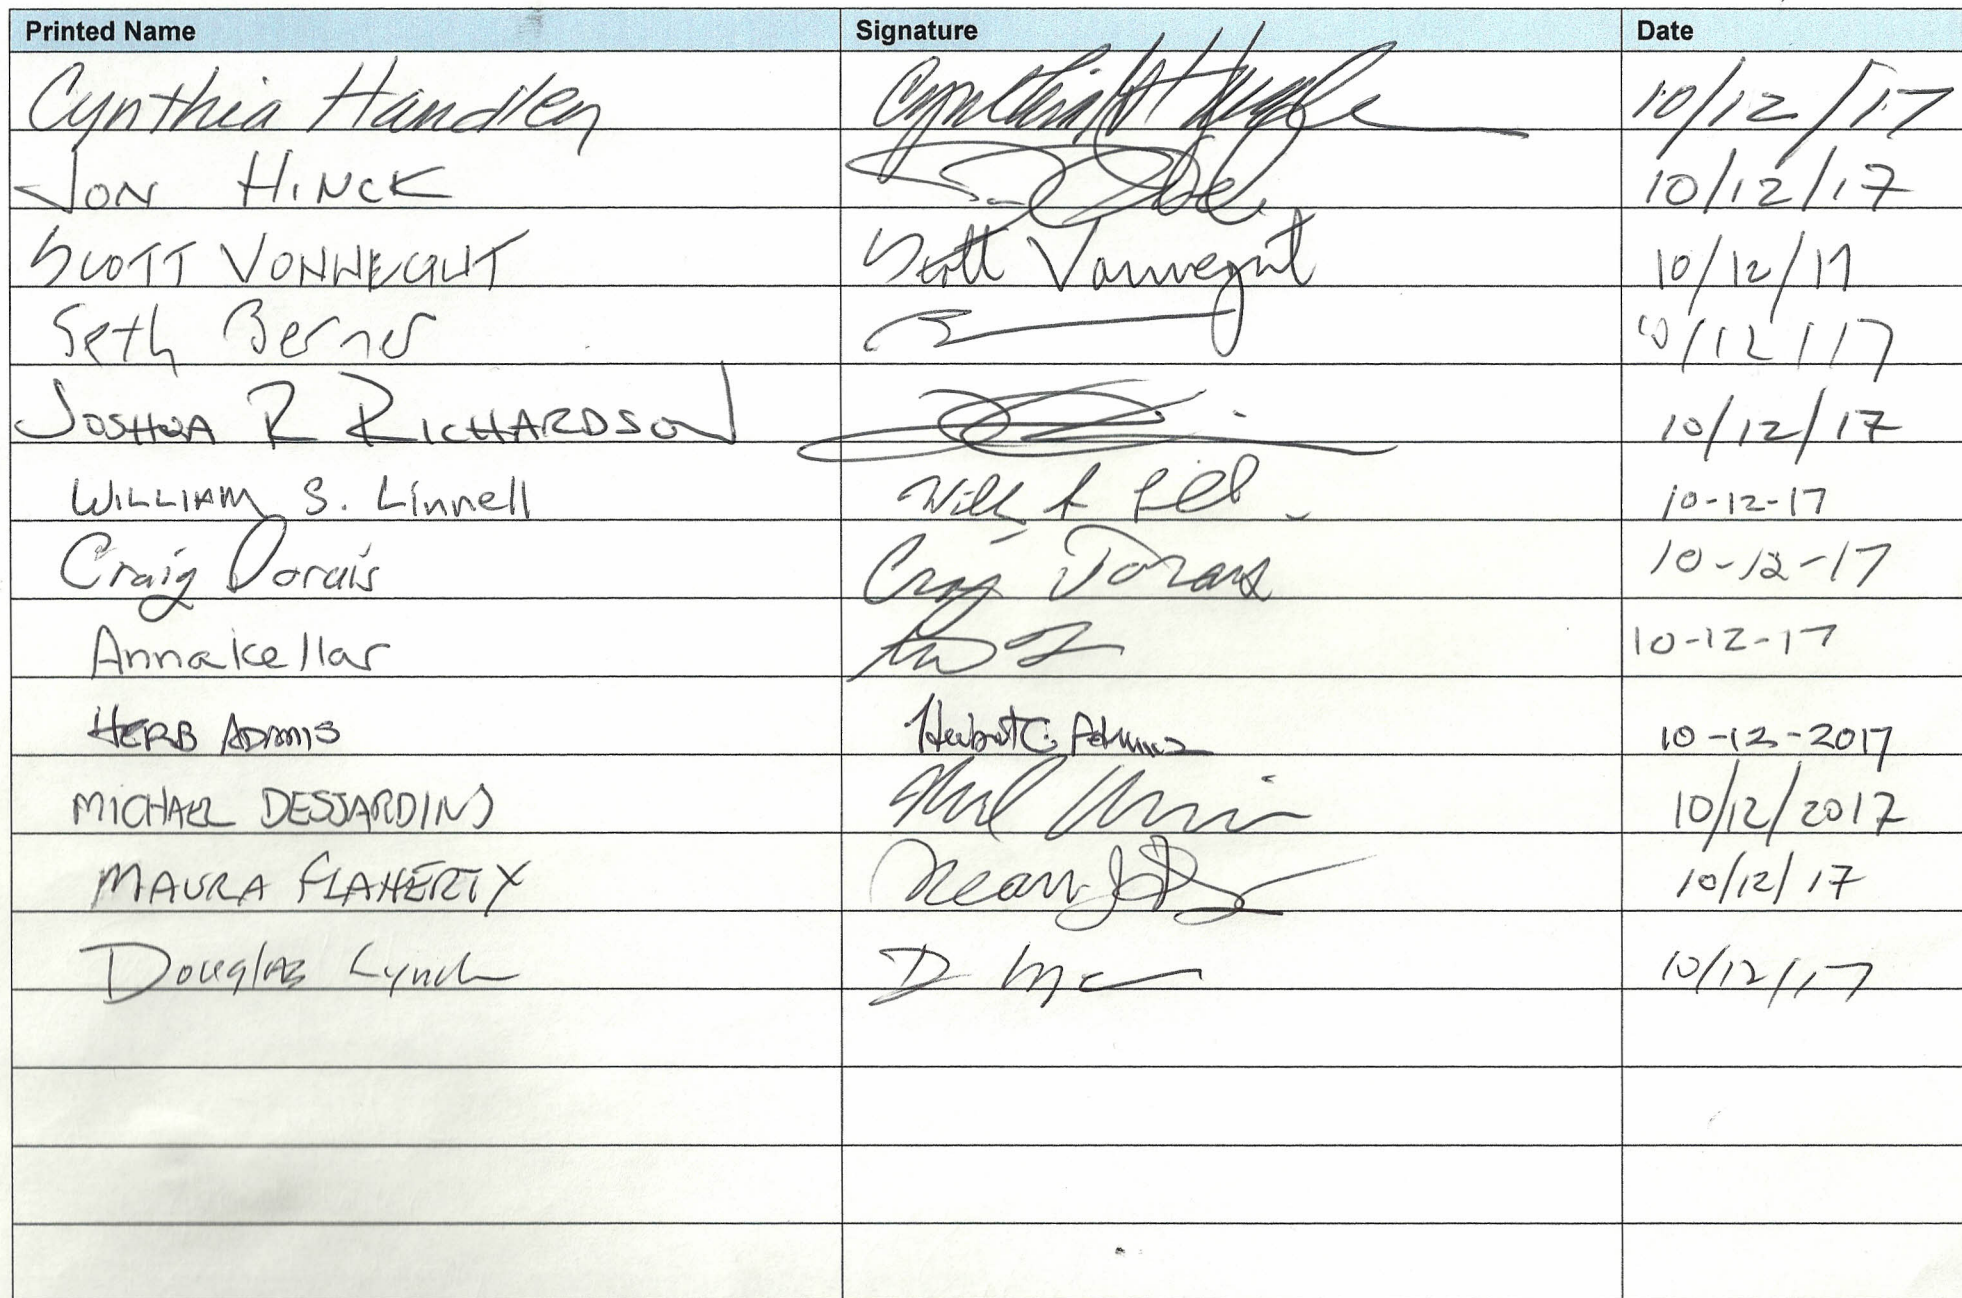 Printed Name Signature Date
Cynthia Handley 10/12/17
JON HINCK 10/12/17
SCOTT VONNEGUT Scott Vonnegut 10/12/17
Seth Berner 10/12/17
JOSHUA R RICHARDSON 10/12/17
WILLIAM S. Linnell 10-12-17
Craig Dorais Craig Dorais 10-12-17
Anna Kellar 10-12-17
HERB ADAMS Herbert C. Adams 10-12-2017
MICHAEL DESJARDINS 10/12/2017
MAURA FLAHERTY 10/12/17
Douglas Lynch 10/12/17